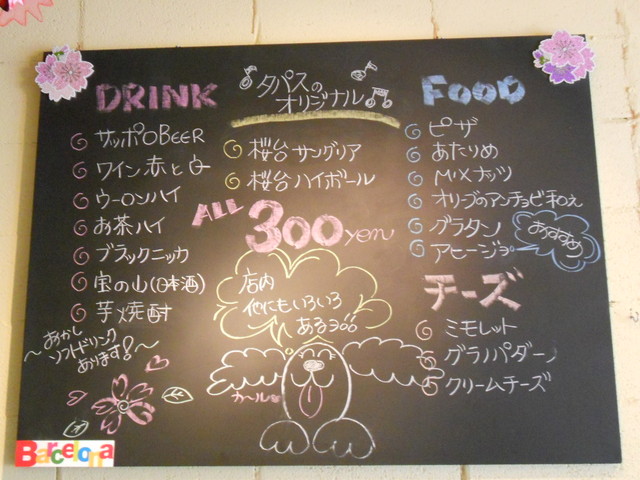 DRINK
サッポロBEER
ワイン 赤と白
ウーロンハイ
お茶ハイ
ブラックニッカ
宝の山(日本酒)
芋焼酎
ソフトドリンク
あります!~
タパスの
オリジナル
桜台 サングリア
桜台 ハイボール
ALL 300 yen
店内
他にもいろいろ
あるヨ
カール
FOOD
ピザ
あたりめ
MIXナッツ
オリーブのアンチョビ和え
グラタン
アヒージョ
おすすめ
チーズ
ミモレット
グラナパダーノ
クリームチーズ
Barcelona